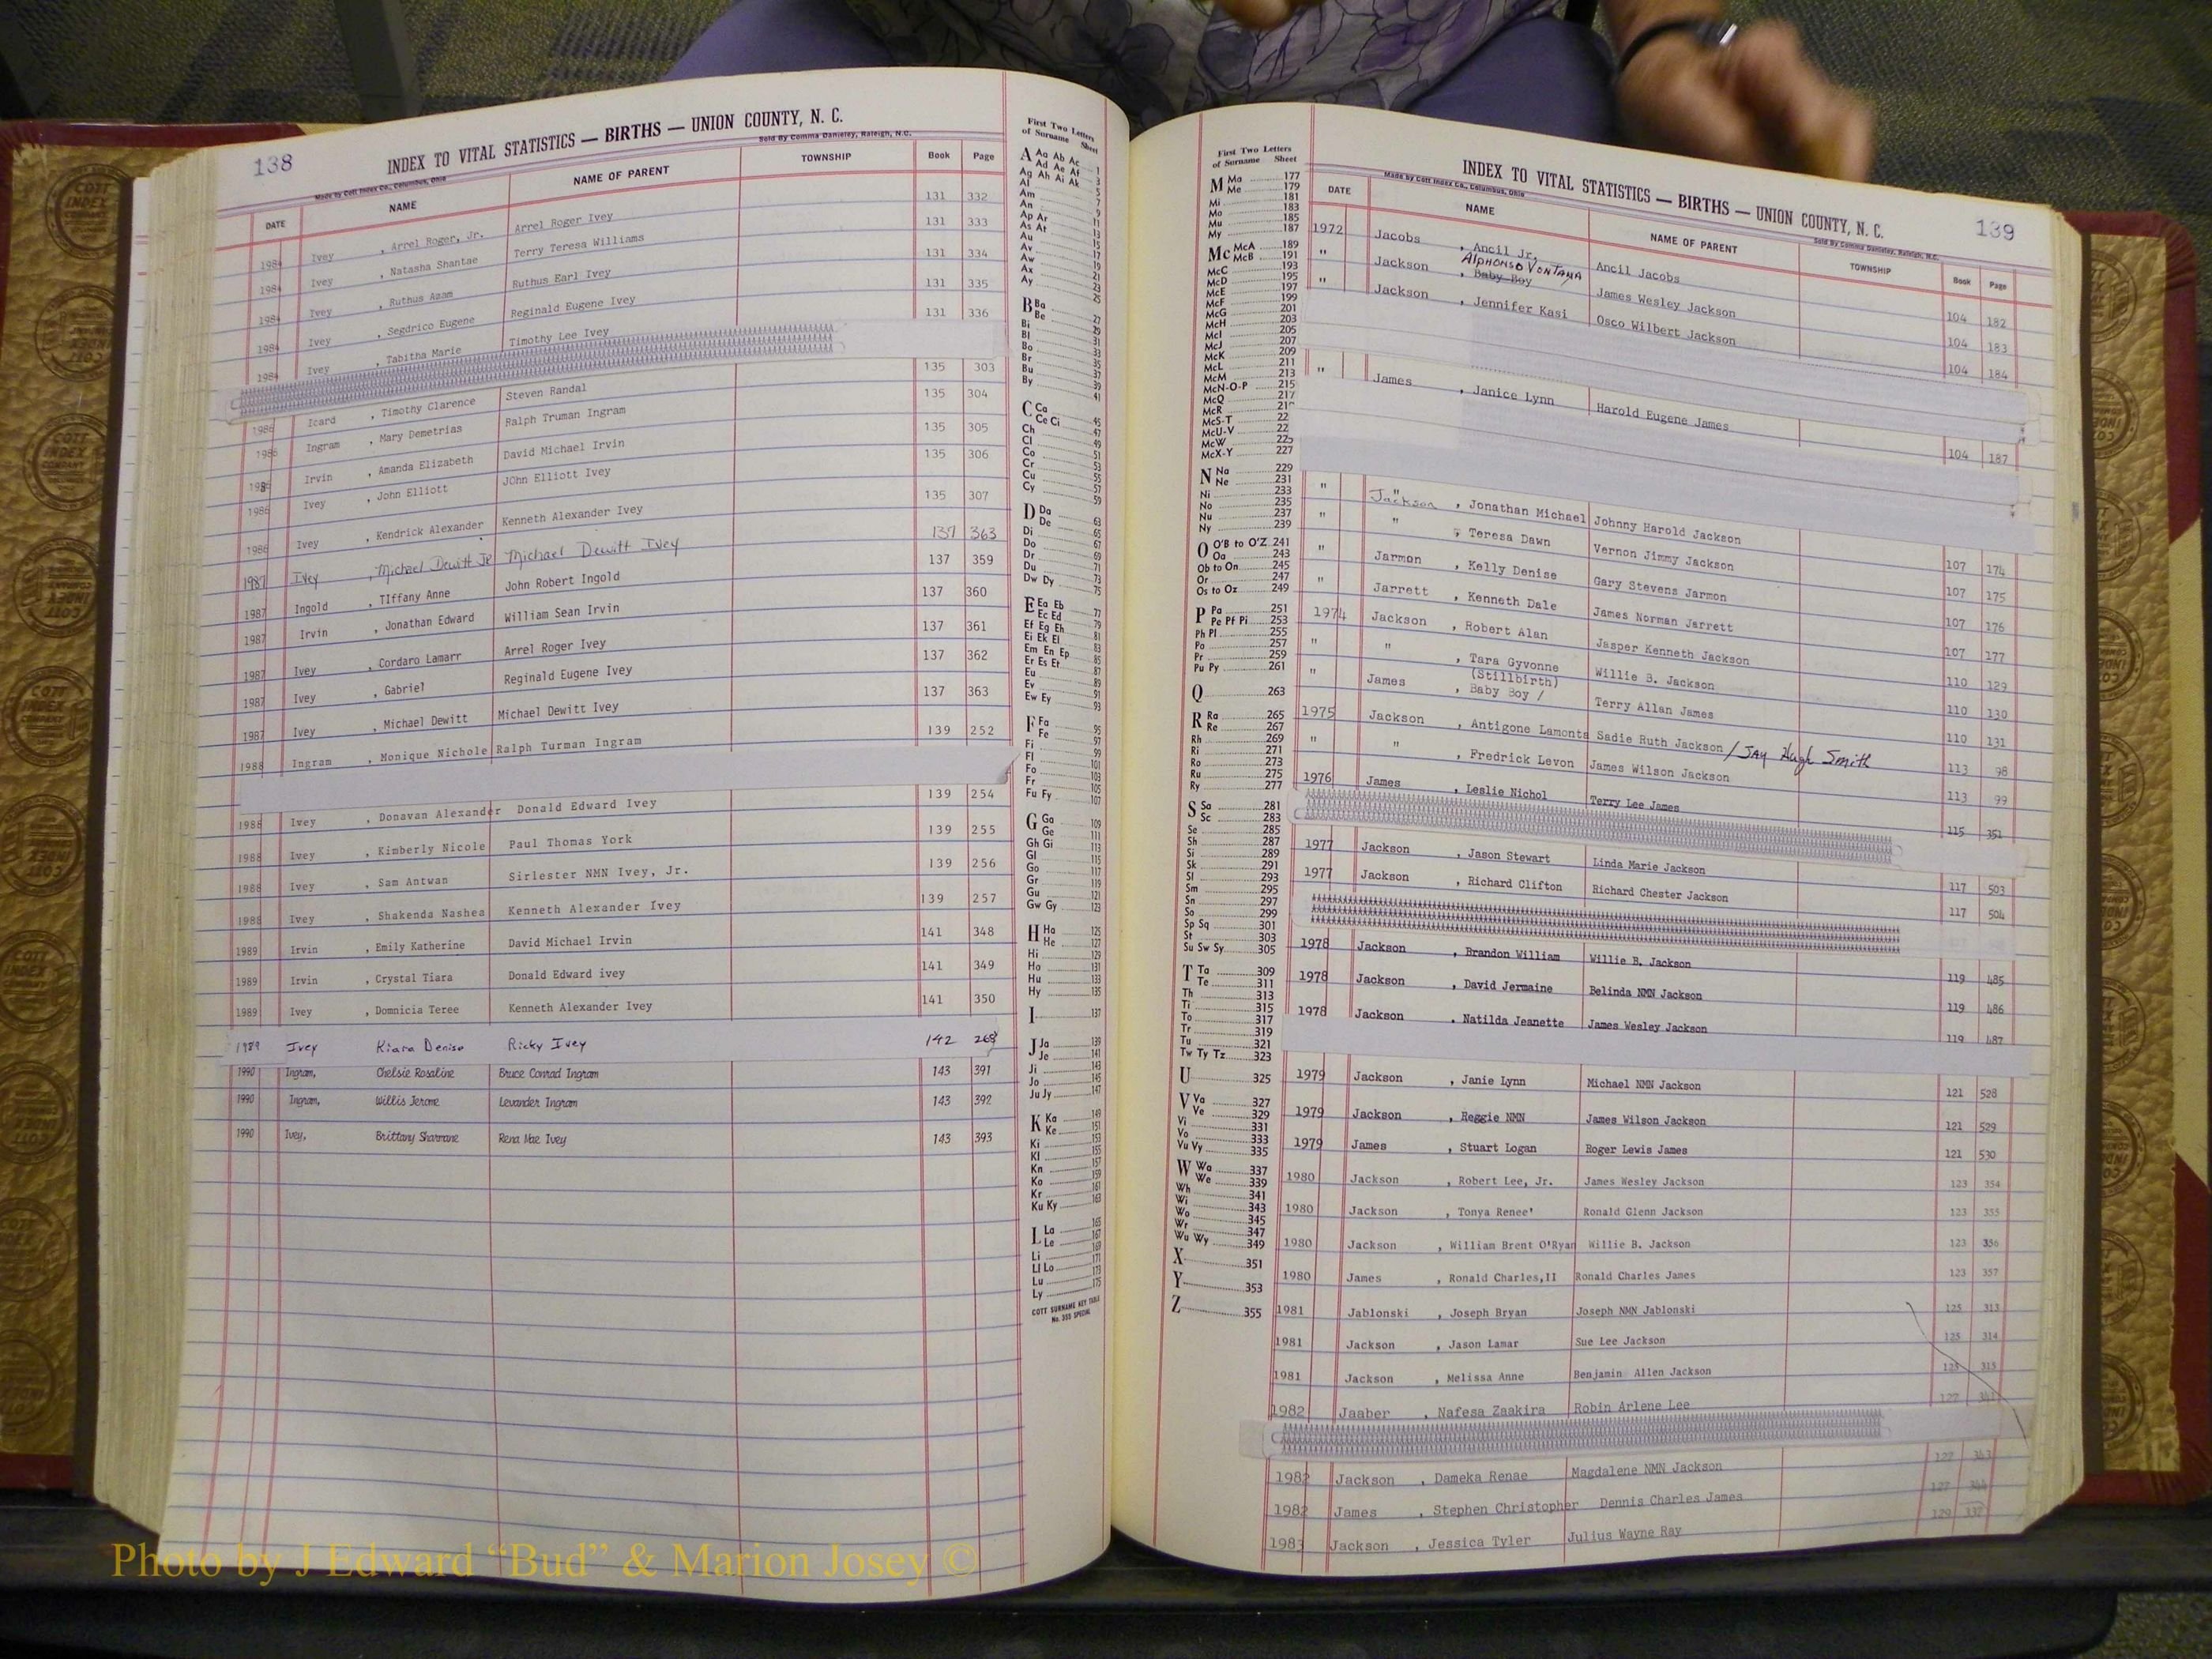 138
INDEX TO VITAL STATISTICS — BIRTHS — UNION COUNTY, N. C.
Made by Cott Index Co., Columbus, Ohio
Sold By Comma Danieley, Raleigh, N.C.
DATE NAME NAME OF PARENT TOWNSHIP Book Page
1984 Ivey , Arrel Roger, Jr. Arrel Roger Ivey 131 332
1984 Ivey , Natasha Shantae Terry Teresa Williams 131 333
1984 Ivey , Ruthus Azam Ruthus Earl Ivey 131 334
1984 Ivey , Segdrico Eugene Reginald Eugene Ivey 131 335
1984 Ivey , Tabitha Marie Timothy Lee Ivey 131 336
1986 Icard , Timothy Clarence Steven Randal 135 303
1986 Ingram , Mary Demetrias Ralph Truman Ingram 135 304
1986 Irvin , Amanda Elizabeth David Michael Irvin 135 305
1986 Ivey , John Elliott JOhn Elliott Ivey 135 306
1986 Ivey , Kendrick Alexander Kenneth Alexander Ivey 135 307
1987 Ivey , Michael Dewitt Jr Michael Dewitt Ivey 137 363
1987 Ingold , TIffany Anne John Robert Ingold 137 359
1987 Irvin , Jonathan Edward William Sean Irvin 137 360
1987 Ivey , Cordaro Lamarr Arrel Roger Ivey 137 361
1987 Ivey , Gabriel Reginald Eugene Ivey 137 362
1987 Ivey , Michael Dewitt Michael Dewitt Ivey 137 363
1988 Ingram , Monique Nichole Ralph Turman Ingram 139 252
1988 Ivey , Donavan Alexander Donald Edward Ivey 139 254
1988 Ivey , Kimberly Nicole Paul Thomas York 139 255
1988 Ivey , Sam Antwan Sirlester NMN Ivey, Jr. 139 256
1988 Ivey , Shakenda Nashea Kenneth Alexander Ivey 139 257
1989 Irvin , Emily Katherine David Michael Irvin 141 348
1989 Irvin , Crystal Tiara Donald Edward ivey 141 349
1989 Ivey , Domnicia Teree Kenneth Alexander Ivey 141 350
1989 Ivey Kiara Denise Ricky Ivey 142 268
1990 Ingram, Chelsie Rosaline Bruce Conrad Ingram 143 391
1990 Ingram, Willis Jerome Levander Ingram 143 392
1990 Ivey, Brittany Sharmane Rena Mae Ivey 143 393
First Two Letters
of Surname Sheet
A Aa Ab Ac 1
Ad Ae Af 3
Ag Ah Ai Ak 5
Al 7
Am 9
An 11
Ap Ar 13
As At 15
Au 17
Av 19
Aw 21
Ax 23
Ay 25
B Ba 27
Be 29
Bi 31
Bl 33
Bo 35
Br 37
Bu 39
By 41
C Ca 45
Ce Ci 47
Ch 49
Cl 51
Co 53
Cr 55
Cu 57
Cy 59
D Da 63
De 65
Di 67
Do 69
Dr 71
Du 73
Dw Dy 75
E Ea Eb 77
Ec Ed 79
Ef Eg Eh 81
Ei Ek El 83
Em En Ep 85
Er Es Et 87
Eu 89
Ev 91
Ew Ey 93
F Fa 95
Fe 97
Fi 99
Fl 101
Fo 103
Fr 105
Fu Fy 107
G Ga 109
Ge 111
Gh Gi 113
Gl 115
Go 117
Gr 119
Gu 121
Gw Gy 123
H Ha 125
He 127
Hi 129
Ho 131
Hu 133
Hy 135
I 137
J Ja 139
Je 141
Ji 143
Jo 145
Ju Jy 147
K Ka 149
Ke 151
Ki 153
Kl 155
Kn 157
Ko 159
Kr 161
Ku Ky 163
L La 165
Le 167
Li 169
Ll Lo 171
Lu 173
Ly 175
COTT SURNAME KEY TABLE
No. 355 SPECIAL
First Two Letters
of Surname Sheet
M Ma 177
Me 179
Mi 181
Mo 183
Mu 185
My 187
Mc McA 189
McB 191
McC 193
McD 195
McE 197
McF 199
McG 201
McH 203
McI 205
McJ 207
McK 209
McL 211
McM 213
McN-O-P 215
McQ 217
McR
McS-T
McU-V
McW 225
McX-Y 227
N Na 229
Ne 231
Ni 233
No 235
Nu 237
Ny 239
O O'B to O'Z 241
Oa 243
Ob to On 245
Or 247
Os to Oz 249
P Pa 251
Pe Pf Pi 253
Ph Pl 255
Po 257
Pr 259
Pu Py 261
Q 263
R Ra 265
Re 267
Rh 269
Ri 271
Ro 273
Ru 275
Ry 277
S Sa 281
Sc 283
Se 285
Sh 287
Si 289
Sk 291
Sl 293
Sm 295
Sn 297
So 299
Sp Sq 301
St 303
Su Sw Sy 305
T Ta 309
Te 311
Th 313
Ti 315
To 317
Tr 319
Tu 321
Tw Ty Tz 323
U 325
V Va 327
Ve 329
Vi 331
Vo 333
Vu Vy 335
W Wa 337
We 339
Wh 341
Wi 343
Wo 345
Wr 347
Wu Wy 349
X 351
Y 353
Z 355
139
INDEX TO VITAL STATISTICS — BIRTHS — UNION COUNTY, N. C.
Made by Cott Index Co., Columbus, Ohio
Sold By Comma Danieley, Raleigh, N.C.
DATE NAME NAME OF PARENT TOWNSHIP Book Page
1972 Jacobs , Ancil Jr, Ancil Jacobs 104 182
ALPHONSO VONTANA
" Jackson , Baby Boy James Wesley Jackson 104 183
" Jackson , Jennifer Kasi Osco Wilbert Jackson 104 184
" James , Janice Lynn Harold Eugene James 104 187
" Jackson , Jonathan Michael Johnny Harold Jackson 107 174
" " , Teresa Dawn Vernon Jimmy Jackson 107 175
" Jarmon , Kelly Denise Gary Stevens Jarmon 107 176
" Jarrett , Kenneth Dale James Norman Jarrett 107 177
1974 Jackson , Robert Alan Jasper Kenneth Jackson 110 129
" " , Tara Gyvonne Willie B. Jackson 110 130
(Stillbirth)
" James , Baby Boy / Terry Allan James 110 131
1975 Jackson , Antigone Lamonta Sadie Ruth Jackson / JAY Hugh Smith 113 98
" " , Fredrick Levon James Wilson Jackson 113 99
1976 James , Leslie Nichol Terry Lee James 115 351
1977 Jackson , Jason Stewart Linda Marie Jackson 117 503
1977 Jackson , Richard Clifton Richard Chester Jackson 117 504
1978 Jackson , Brandon William Willie B. Jackson 119 485
1978 Jackson , David Jermaine Belinda NMN Jackson 119 486
1978 Jackson , Natilda Jeanette James Wesley Jackson 119 487
1979 Jackson , Janie Lynn Michael NMN Jackson 121 528
1979 Jackson , Reggie NMN James Wilson Jackson 121 529
1979 James , Stuart Logan Roger Lewis James 121 530
1980 Jackson , Robert Lee, Jr. James Wesley Jackson 123 354
1980 Jackson , Tonya Renee' Ronald Glenn Jackson 123 355
1980 Jackson , William Brent O'Ryan Willie B. Jackson 123 356
1980 James , Ronald Charles,II Ronald Charles James 123 357
1981 Jablonski , Joseph Bryan Joseph NMN Jablonski 125 313
1981 Jackson , Jason Lamar Sue Lee Jackson 125 314
1981 Jackson , Melissa Anne Benjamin Allen Jackson 125 315
1982 Jaaber , Nafesa Zaakira Robin Arlene Lee 127 341
1982 Jackson , Dameka Renae Magdalene NMN Jackson 127 343
1982 James , Stephen Christopher Dennis Charles James 127 344
1983 Jackson , Jessica Tyler Julius Wayne Ray 129 332
Photo by J Edward “Bud” & Marion Josey ©